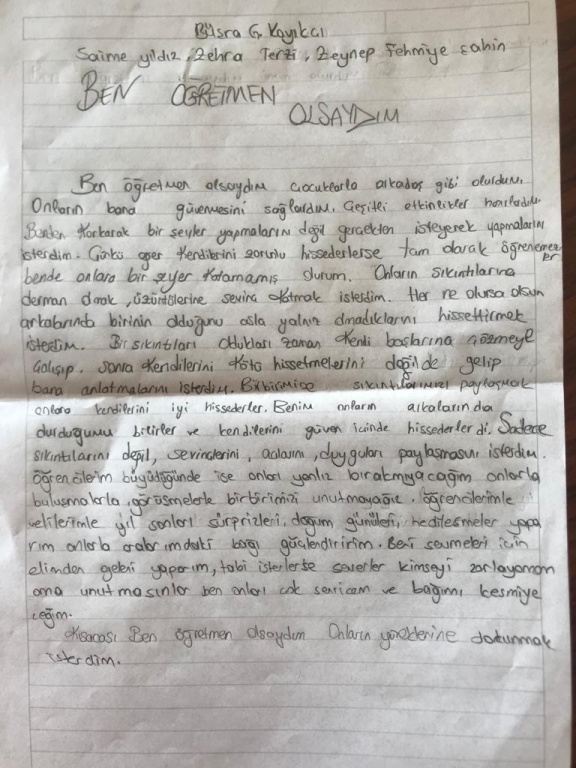 Büşra G. Kayıkcı
Saime yıldız, Zehra Terzi, Zeynep Fehmiye Şahin
BEN ÖĞRETMEN
OLSAYDIM
Ben öğretmen olsaydım çocuklarla arkadaş gibi olurdum.
Onların bana güvenmesini sağlardım. Çeşitli etkinlikler hazırladım.
Benden korkarak bir şeyler yapmalarını değil gerçekten isteyerek yapmalarını
isterdim. Çünkü eğer kendilerini zorunlu hissederlerse tam olarak öğrenemezler
bende onlara bir şeyler katamamış olurum. Onların sıkıntılarına
derman olmak, üzüntülerine sevinç katmak isterdim. Her ne olursa olsun
arkalarında birinin olduğunu asla yalnız olmadıklarını hissettirmek
isterdim. Bir sıkıntıları oldukları zaman kendi başlarına çözmeye
çalışıp, sonra kendilerini kötü hissetmelerini değil de gelip
bana anlatmalarını isterdim. Birbirimize sıkıntılarımızı paylaşmak
onlara kendilerini iyi hissederler. Benim onların arkalarında
durduğumu bilirler ve kendilerini güven içinde hissederlerdi. Sadece
sıkıntılarını değil, sevinçlerini, acılarını, duyguları paylaşmasını isterdim.
Öğrencilerim büyüdüğünde ise onları yanlız bırakmıyacağım onlarla
buluşmalarla, görüşmelerle birbirimizi unutmayağız. Öğrencilerimle
velilerimle yıl sonları sürprizleri, doğum günüleri, hedileşmeler yapa
rım onlarla aralarımdaki bağı güçlendiririm. Beni sevmeleri için
elimden geleni yaparım, tabi isterlerse severler kimseyi zorlayamam
ama unutmasınlar ben onları çok sevicam ve bağımı kesmiye
ceğim.
Kısacası Ben öğretmen olsaydım Onların yüreklerine dokunmak
isterdim.